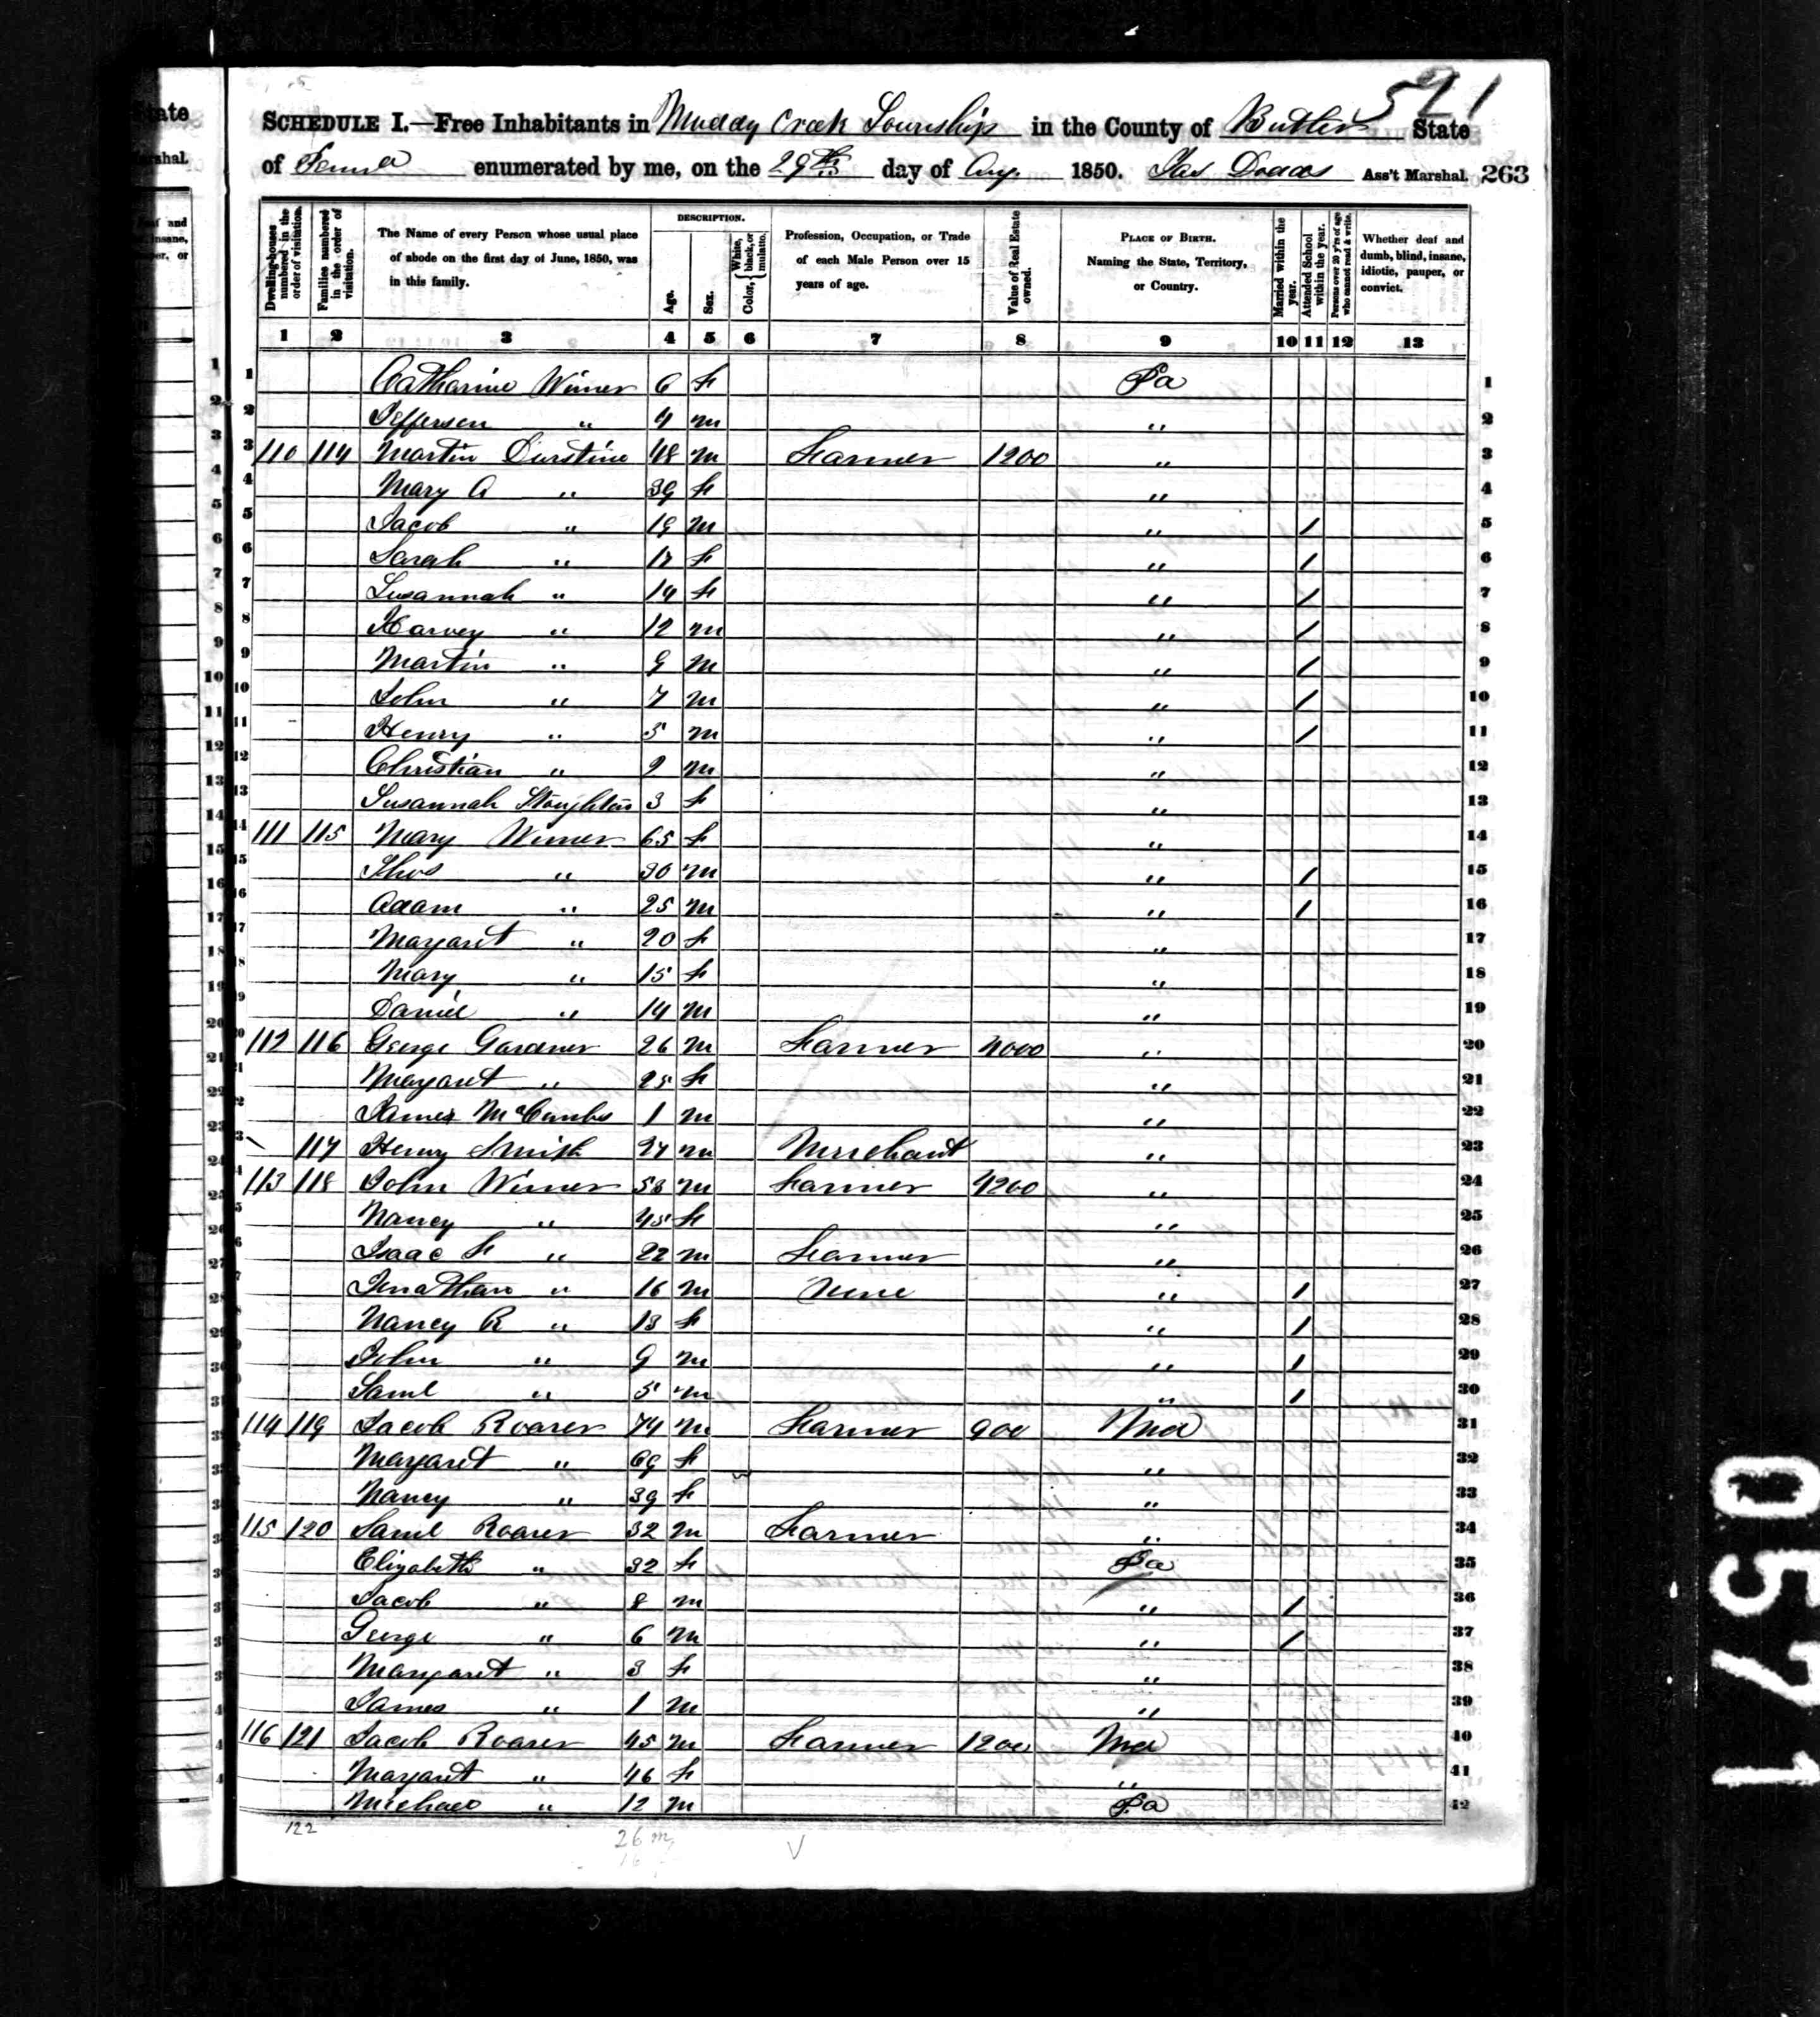 521
SCHEDULE I.—Free Inhabitants in Muddy Creek Township in the County of Butler State
of Penna enumerated by me, on the 29th day of Aug 1850. Jas Dodds Ass't Marshal. 263
Dwelling-houses numbered in the order of visitation.
Families numbered in the order of visitation.
The Name of every Person whose usual place of abode on the first day of June, 1850, was in this family.
DESCRIPTION.
Age.
Sex.
Color, White, black, or mulatto.
Profession, Occupation, or Trade of each Male Person over 15 years of age.
Value of Real Estate owned.
PLACE OF BIRTH. Naming the State, Territory, or Country.
Married within the year.
Attended School within the year.
Persons over 20 y'rs of age who cannot read & write.
Whether deaf and dumb, blind, insane, idiotic, pauper, or convict.
1 2 3 4 5 6 7 8 9 10 11 12 13
1 Catharine Wimer 6 f Pa 1
2 Jefferson " 4 m " 2
3 110 114 Martin Durstine 48 m Farmer 1200 " 3
4 Mary A " 39 f " 4
5 Jacob " 19 m " / 5
6 Sarah " 17 f " / 6
7 Susannah " 14 f " / 7
8 Harvey " 12 m " / 8
9 Martin " 9 m " / 9
10 John " 7 m " / 10
11 Henry " 5 m " / 11
12 Christian " 2 m " 12
13 Susannah Stoughton 3 f " 13
14 111 115 Mary Wimer 65 f " 14
15 Thos " 30 m " / 15
16 Adam " 25 m " / 16
17 Margaret " 20 f " 17
18 Mary " 15 f " 18
19 Daniel " 14 m " 19
20 112 116 George Gardner 26 m Farmer 4000 " 20
21 Margaret " 25 f " 21
22 James McCombs 1 m " 22
23 117 Henry Smith 27 m Merchant " 23
24 113 118 John Wimer 53 m Farmer 4200 " 24
Nancy " 45 f " 25
Isaac F " 22 m Farmer " 26
Jonathan " 16 m None " / 27
Nancy R " 13 f " / 28
John " 9 m " / 29
Saml " 5 m " / 30
114 119 Jacob Roarer 74 m Farmer 900 Md 31
Margaret " 69 f " 32
Nancy " 39 f " 33
115 120 Saml Roarer 32 m Farmer " 34
Elizabeth " 32 f Pa 35
Jacob " 8 m " / 36
George " 6 m " / 37
Margaret " 3 f " 38
James " 1 m " 39
116 121 Jacob Roarer 45 m Farmer 1200 Md 40
Margaret " 46 f " 41
Michael " 12 m Pa 42
122 26 m
16
0571